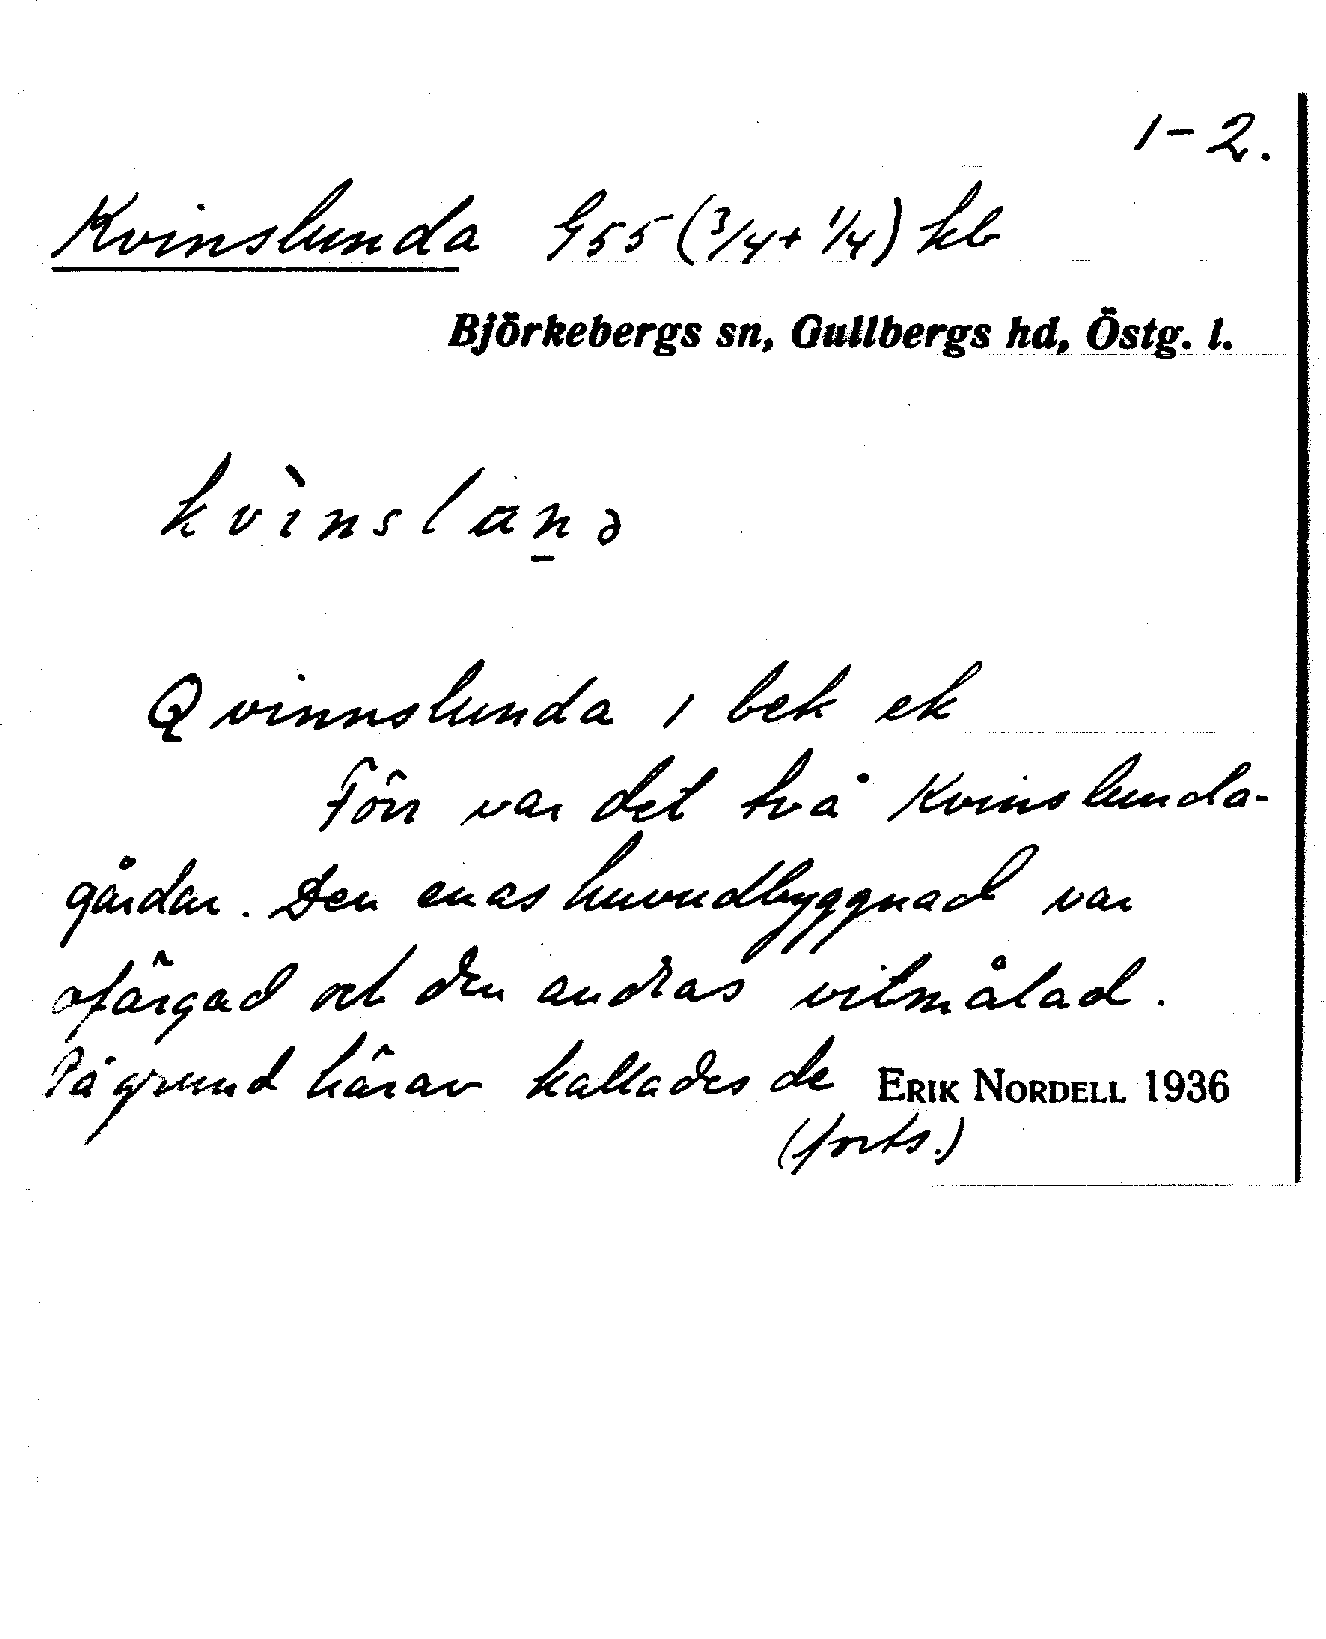 1-2.
Kvinslunda G55 (3/4 + 1/4) kb
Björkebergs sn, Gullbergs hd, Östg. l.
kvìnslan̲ə
Qvinnslunda 1 bek ek
Förr var det två Kvinslunda-
gårdar. Den enas huvudbyggnad var
ofärgad och den andras vitmålad.
På grund härav kallades de ERIK NORDELL 1936
(forts.)